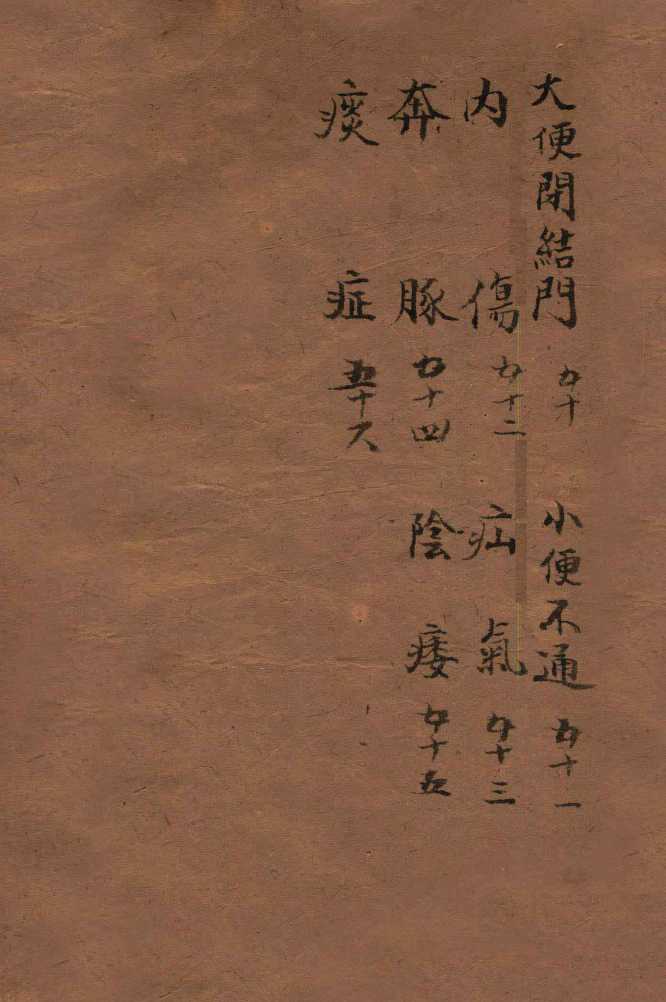 大便閉結門 五十 小便不通 五十一
內傷 五十二 疝氣 五十三
奔豚 五十四 陰痿 五十五
痰症 五十六